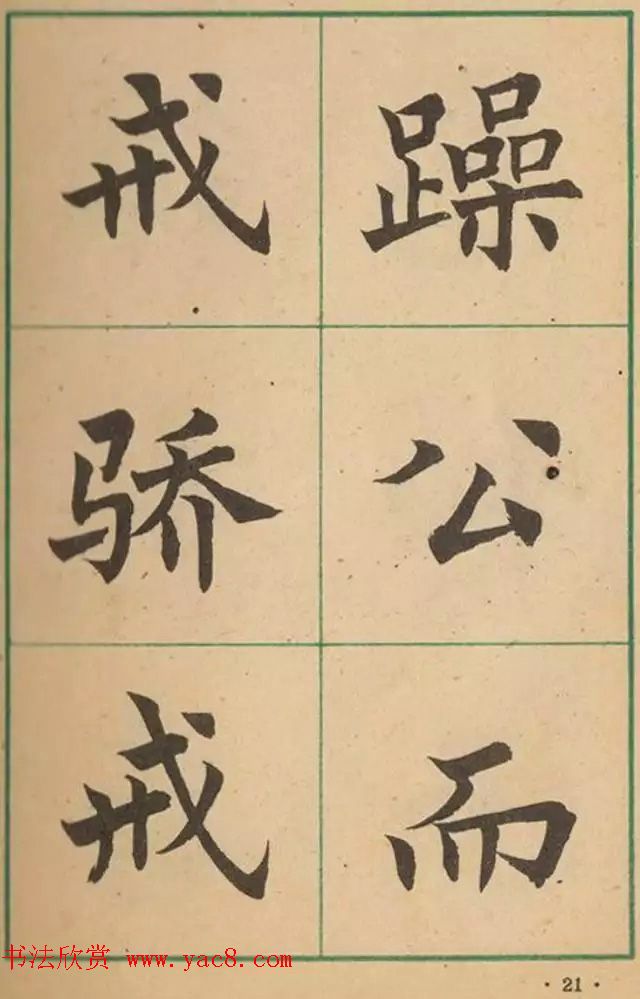 戒骄戒
躁公而
书法欣赏 www.yac8.com
· 21 ·